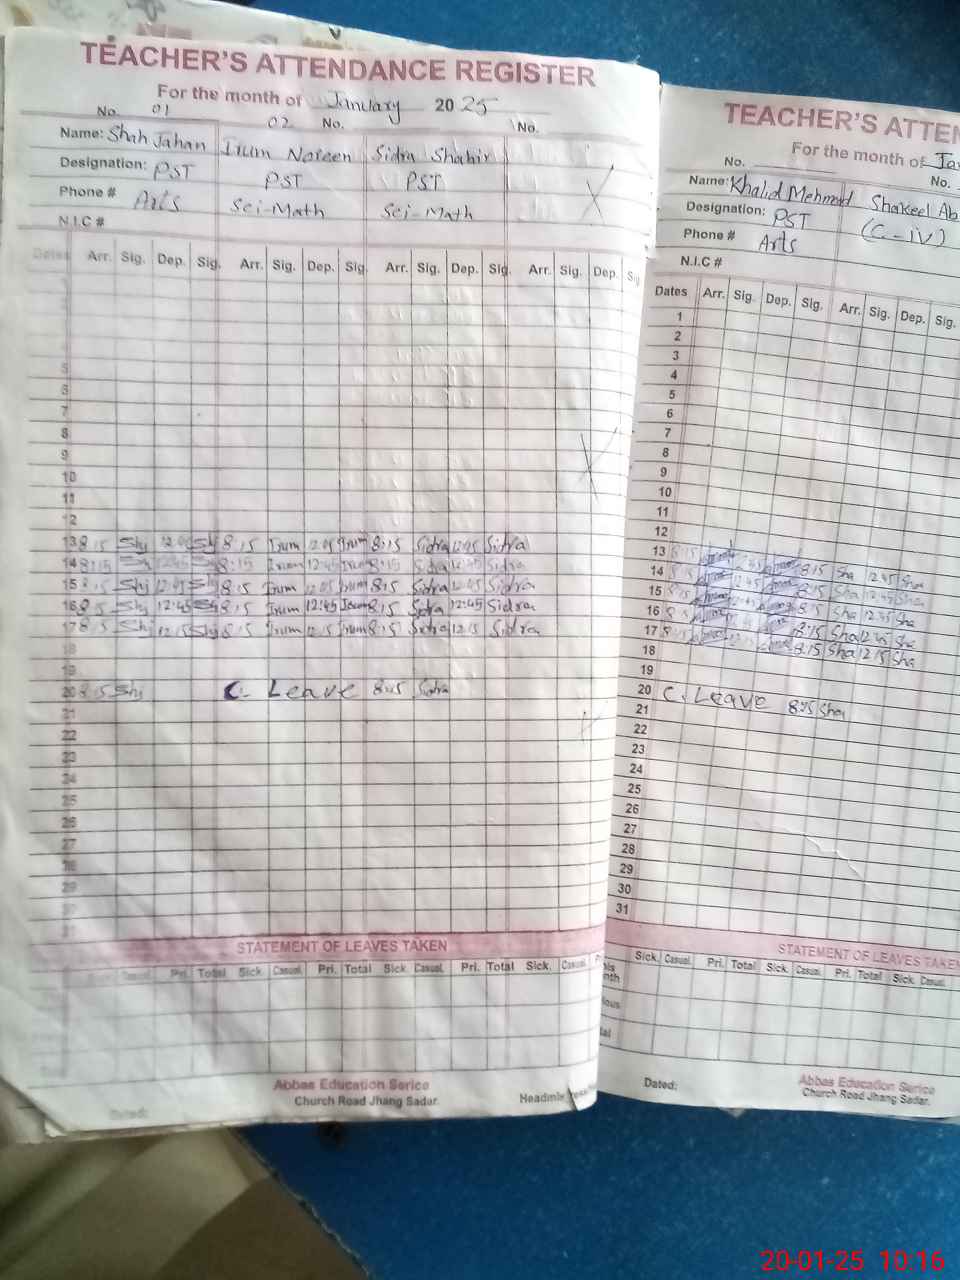 TEACHER'S ATTENDANCE REGISTER
For the month of January 2025
No. 01 02 No. No.
Name: Shah Jahan Irum Noreen Sidra Shabir
Designation: PST PST PST
Phone # Arts Sci-Math Sci-Math
N.I.C #
Dates Arr. Sig. Dep. Sig. Arr. Sig. Dep. Sig. Arr. Sig. Dep. Sig. Arr. Sig. Dep. Sig.
5
6
7
8
9
10
11
12
13 8:15 Shj Shj 8:15 Irum 12:05 Irum 8:15 Sidra 12:05 Sidra
14 8:15 Shj 12:45 Shj 8:15 Irum 12:45 Irum 8:15 Sidra 12:45 Sidra
15 8:15 Shj 12:05 Shj 8:15 Irum 12:05 Irum 8:15 Sidra 12:05 Sidra
16 8:15 Shj 12:45 Shj 8:15 Irum 12:45 Irum 8:15 Sidra 12:45 Sidra
17 8:15 Shj 12:15 Shj 8:15 Irum 12:15 Irum 8:15 Sidra 12:15 Sidra
18
19
20 8:15 Shj C. Leave 8:15 Sidra
21
22
23
24
25
26
27
28
29
STATEMENT OF LEAVES TAKEN
Casual. Pri. Total Sick. Casual. Pri. Total Sick. Casual. Pri. Total Sick. Casual.
Abbas Education Serice
Church Road Jhang Sadar.
Dated:
TEACHER'S ATTEN
For the month of Ja
No. No.
Name: Khalid Mehmood Shakeel Ab
Designation: PST (C-IV)
Phone # Arts
N.I.C #
Dates Arr. Sig. Dep. Sig. Arr. Sig. Dep. Sig.
1
2
3
4
5
6
7
8
9
10
11
12
13 8:15 12:45 8:15 Sha 12:45 Sha
14 8:15 12:45 8:15 Sha 12:45 Sha
15 8:15 12:45 8:15 Sha 12:45 Sha
16 8:15 8:15 Sha 12:45 Sha
17 8:15 12:15 8:15 Sha 12:15 Sha
18
19
20 C. Leave 8:15 Sha
21
22
23
24
25
26
27
28
29
30
31
STATEMENT OF LEAVES TAKEN
Sick. Casual. Pri. Total Sick. Casual. Pri. Total Sick. Casual.
Dated:
Abbas Education Serice
Church Road Jhang Sadar.
20-01-25 10:16